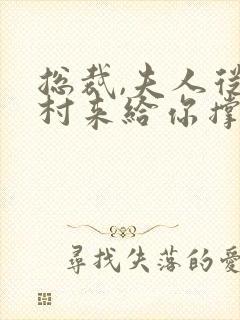 總裁,夫人從
村来給你撐
尋找失落的愛